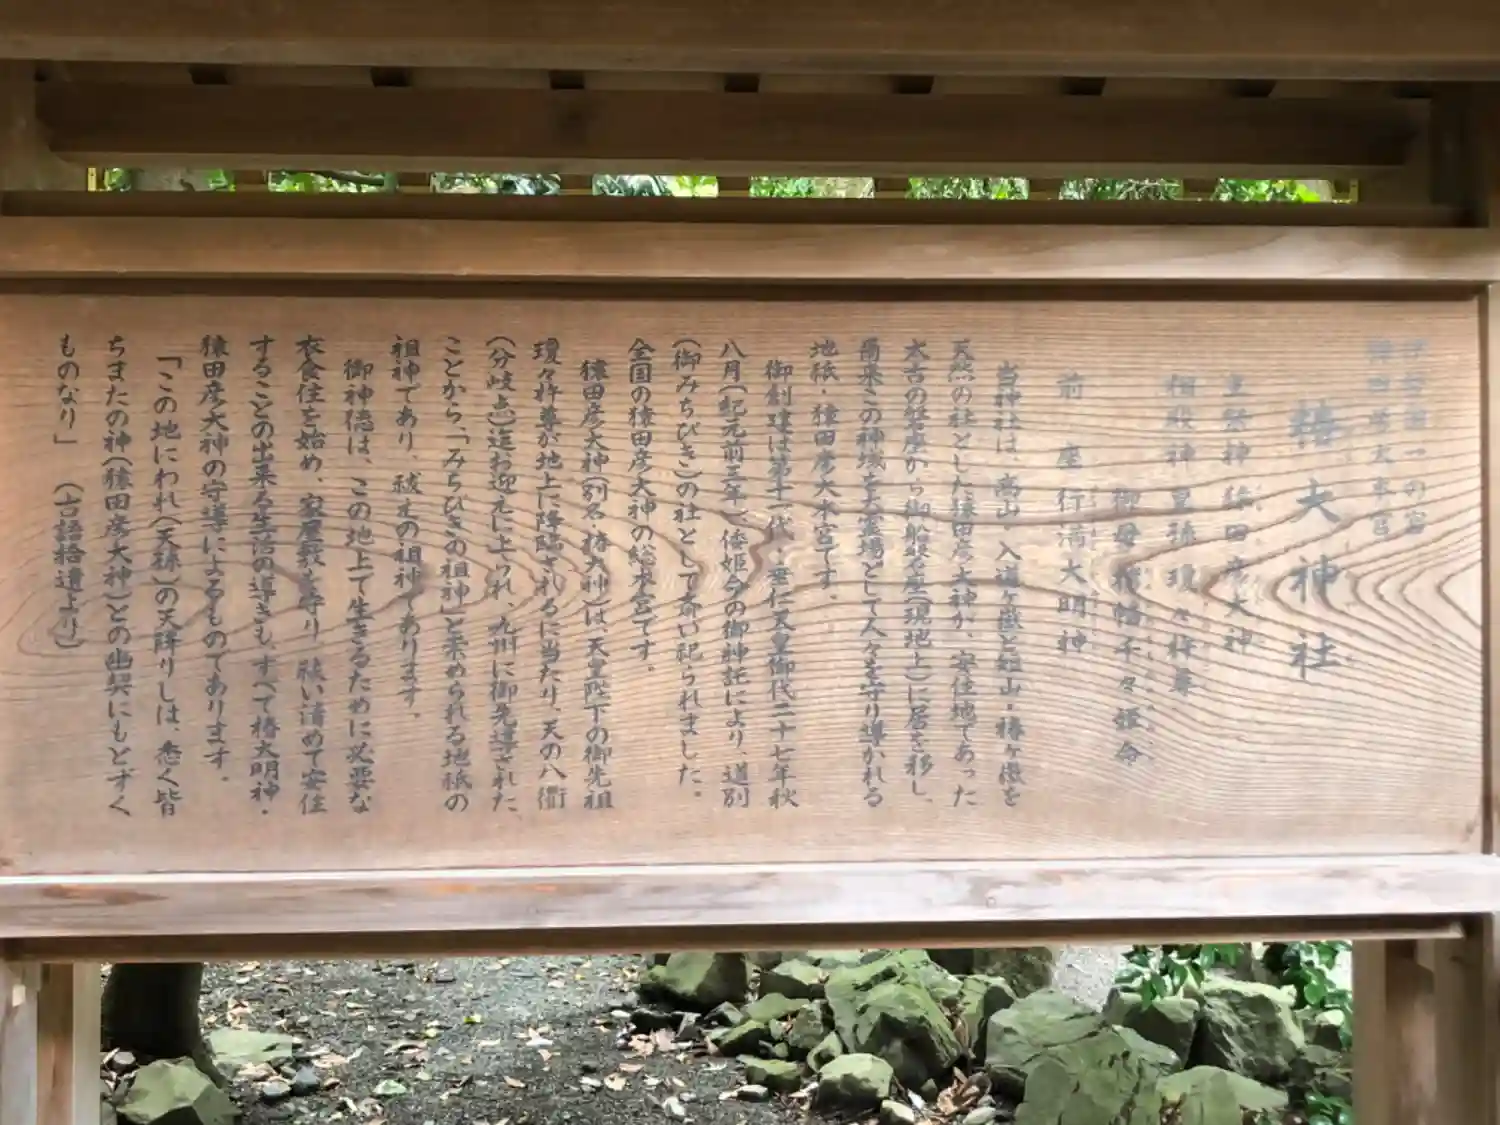 伊勢国一の宮
猿田彦大本宮
椿大神社
主祭神 猿田彦大神
相殿神 皇孫瓊々杵尊
御母栲幡千々姫命
前座 行満大明神
当神社は、高山、入道ヶ嶽と短山・椿ヶ嶽を
天然の社とした猿田彦大神が、安住地であった
太古の磐座から御船磐座(現地上)に居を移し、
爾来この神域を大霊場として人々を守り導かれる
地祇・猿田彦大本宮です。
御創建は第十一代、垂仁天皇御代二十七年秋
八月(紀元前三年)、倭姫命の御神託により、道別
(御みちびき)の社として斎い祀られました。
全国の猿田彦大神の総本宮です。
猿田彦大神(別名・椿大神)は、天皇陛下の御先祖
瓊々杵尊が地上に降臨されるに当たり、天の八衢
(分岐点)迄お迎えに上られ、九州に御先導された
ことから、「みちびきの祖神」と崇められる地祇の
祖神であり、祓えの祖神であります。
御神徳は、この地上で生きるために必要な
衣食住を始め、家屋敷を守り、祓い清めて安住
することの出来る生活の導きも、すべて椿大明神・
猿田彦大神の守導によるものであります。
「この地にわれ(天孫)の天降りしは、悉く皆
ちまたの神(猿田彦大神)との幽契にもとずく
ものなり」 (古語拾遺より)